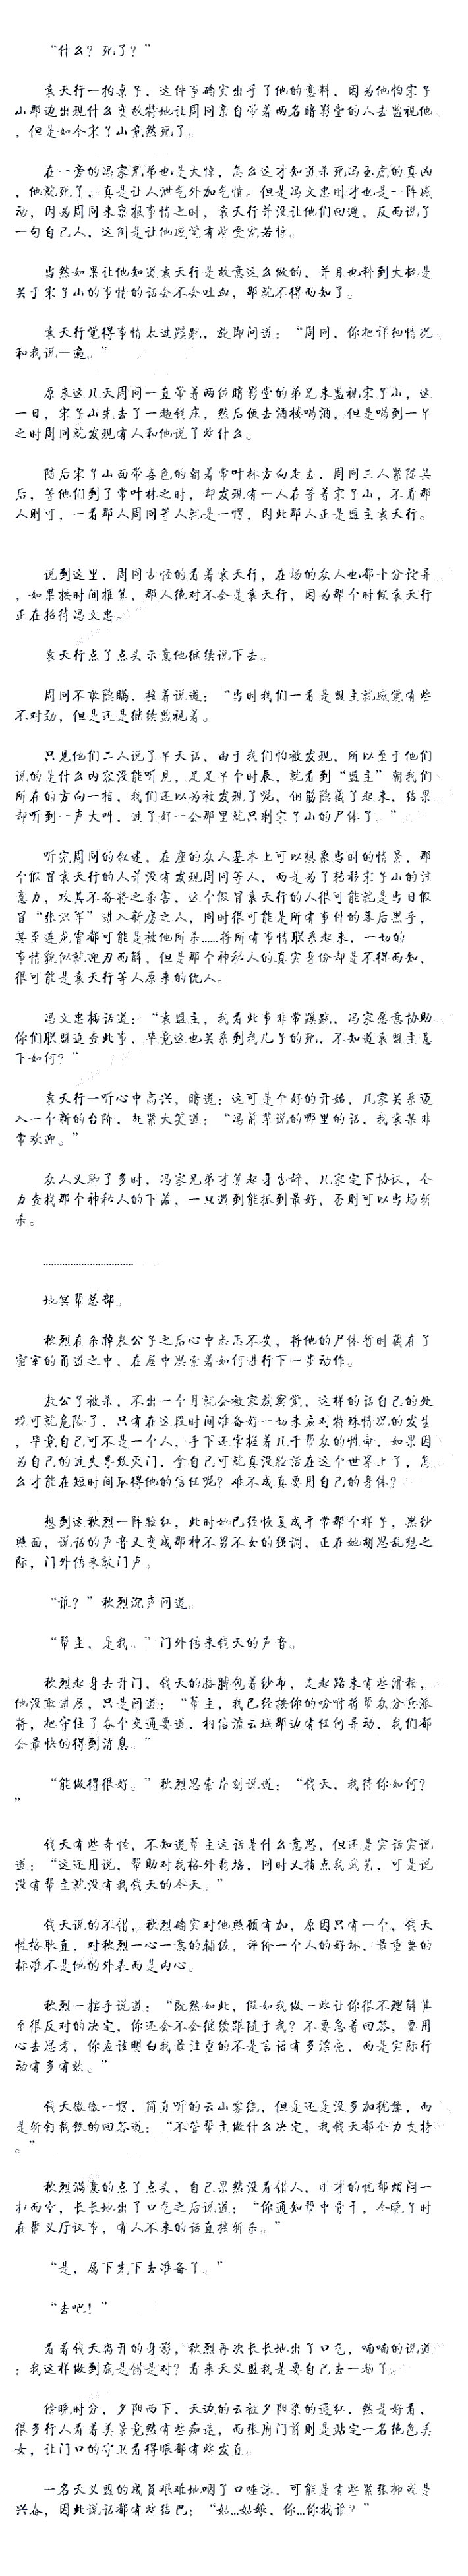 “什么？死了？”
袁天行一拍桌子，这件事确实出乎了他的意料，因为他怕宋子
山那边出现什么变故特地让周同亲自带着两名暗影堂的人去监视他
，但是如今宋子山竟然死了。
在一旁的冯家兄弟也是大惊，怎么这才知道杀死冯玉虎的真凶
，他就死了，真是让人泄气外加气愤。但是冯文忠刚才也是一阵感
动，因为周同来禀报事情之时，袁天行并没让他们回避，反而说了
一句自己人，这倒是让他感觉有些受宠若惊。
当然如果让他知道袁天行是故意这么做的，并且也料到大概是
关于宋子山的事情的话会不会吐血，那就不得而知了。
袁天行觉得事情太过蹊跷，旋即问道：“周同，你把详细情况
和我说一遍。”
原来这几天周同一直带着两位暗影堂的弟兄来监视宋子山，这
一日，宋子山先去了一趟钱庄，然后便去酒楼喝酒，但是喝到一半
之时周同就发现有人和他说了些什么。
随后宋子山面带喜色的朝着常叶林方向走去，周同三人紧随其
后，等他们到了常叶林之时，却发现有一人在等着宋子山，不看那
人则可，一看那人周同等人就是一愣，因此那人正是盟主袁天行。
说到这里，周同古怪的看着袁天行，在场的众人也都十分诧异
，如果按时间推算，那人绝对不会是袁天行，因为那个时候袁天行
正在招待冯文忠。
袁天行点了点头示意他继续说下去。
周同不敢隐瞒，接着说道：“当时我们一看是盟主就感觉有些
不对劲，但是还是继续监视着。
只见他们二人说了半天话，由于我们怕被发现，所以至于他们
说的是什么内容没能听见，足足半个时辰，就看到“盟主”朝我们
所在的方向一指，我们还以为被发现了呢，俯筋隐藏了起来，结果
却听到一声大叫，过了好一会那里就只剩宋子山的尸体了。”
听完周同的叙述，在座的众人基本上可以想象当时的情景，那
个假冒袁天行的人并没有发现周同等人，而是为了转移宋子山的注
意力，攻其不备将之杀害，这个假冒袁天行的人很可能就是当日假
冒“张洪军”进入新房之人，同时很可能是所有事件的幕后黑手，
甚至连龙霄都可能是被他所杀……将所有事情联系起来，一切的
事情貌似就迎刃而解，但是那个神秘人的真实身份却是不得而知，
很可能是袁天行等人原来的仇人。
冯文忠插话道：“袁盟主，我看此事非常蹊跷，冯家愿意协助
你们联盟追查此事，毕竟这也关系到我儿子的死，不知道袁盟主意
下如何？”
袁天行一听心中高兴，暗道：这可是个好的开始，几家关系迈
入一个新的台阶，赶紧大笑道：“冯前辈说的哪里的话，我袁某非
常欢迎。”
众人又聊了多时，冯家兄弟才算起身告辞，几家定下协议，全
力查找那个神秘人的下落，一旦遇到能抓到最好，否则可以当场斩
杀。
……………………………
地冥帮总部。
秋烈在杀掉敖公子之后心中忐忑不安，将他的尸体暂时藏在了
密室的甬道之中，在屋中思索着如何进行下一步动作。
敖公子被杀，不出一个月就会被家族察觉，这样的话自己的处
境可就危险了，只有在这段时间准备好一切来应对特殊情况的发生
，毕竟自己可不是一个人，手下还掌握着几千帮众的性命，如果因
为自己的过失导致灭门，令自己可就真没脸活在这个世界上了，怎
么才能在短时间取得他的信任呢？难不成真要用自己的身体？
想到这秋烈一阵脸红，此时她已经恢复成平常那个样子，黑纱
照面，说话的声音又变成那种不男不女的强调，正在她胡思乱想之
际，门外传来敲门声。
“谁？”秋烈沉声问道。
“帮主，是我。”门外传来钱天的声音。
秋烈起身去开门，钱天的胳膊包着纱布，走起路来有些滑稽，
他没敢进屋，只是问道：“帮主，我已经按你的吩咐将帮众分兵派
将，把守住了各个交通要道，相信流云城那边有任何异动，我们都
会最快的得到消息。”
“能做得很好。”秋烈思索片刻说道：“钱天，我待你如何？
”
钱天有些奇怪，不知道帮主这话是什么意思，但还是实话实说
道：“这还用说，帮助对我格外栽培，同时又指点我武艺，可是说
没有帮主就没有我钱天的今天。”
钱天说的不错，秋烈确实对他照顾有加，原因只有一个，钱天
性格耿直，对秋烈一心一意的辅佐，评价一个人的好坏，最重要的
标准不是他的外表而是内心。
秋烈一摆手说道：“既然如此，假如我做一些让你很不理解甚
至很反对的决定，你还会不会继续跟随于我？不要急着回答，要用
心去思考，你应该明白我最注重的不是言语有多漂亮，而是实际行
动有多有效。”
钱天微微一愣，简直听的云山雾绕，但是还是没多加犹豫，而
是斩钉截铁的回答道：“不管帮主做什么决定，我钱天都全力支持
。”
秋烈满意的点了点头，自己果然没看错人，刚才的忧郁烦闷一
扫而空，长长地出了口气之后说道：“你通知帮中骨干，今晚子时
在聚义厅议事，有人不来的话直接斩杀。”
“是，属下先下去准备了。”
“去吧！”
看着钱天离开的身影，秋烈再次长长地出了口气，喃喃的说道
：我这样做到底是错是对？看来天义盟我是要自己去一趟了。
傍晚时分，夕阳西下，天边的云被夕阳染的通红，煞是好看，
很多行人看着美景竟然有些痴迷，而张府门前则是站定一名绝色美
女，让门口的守卫看得眼都有些发直。
一名天义盟的成员艰难地咽了口唾沫，可能是有些紧张抑或是
兴奋，因此说话都有些结巴：“姑...姑娘，你...你找谁？”